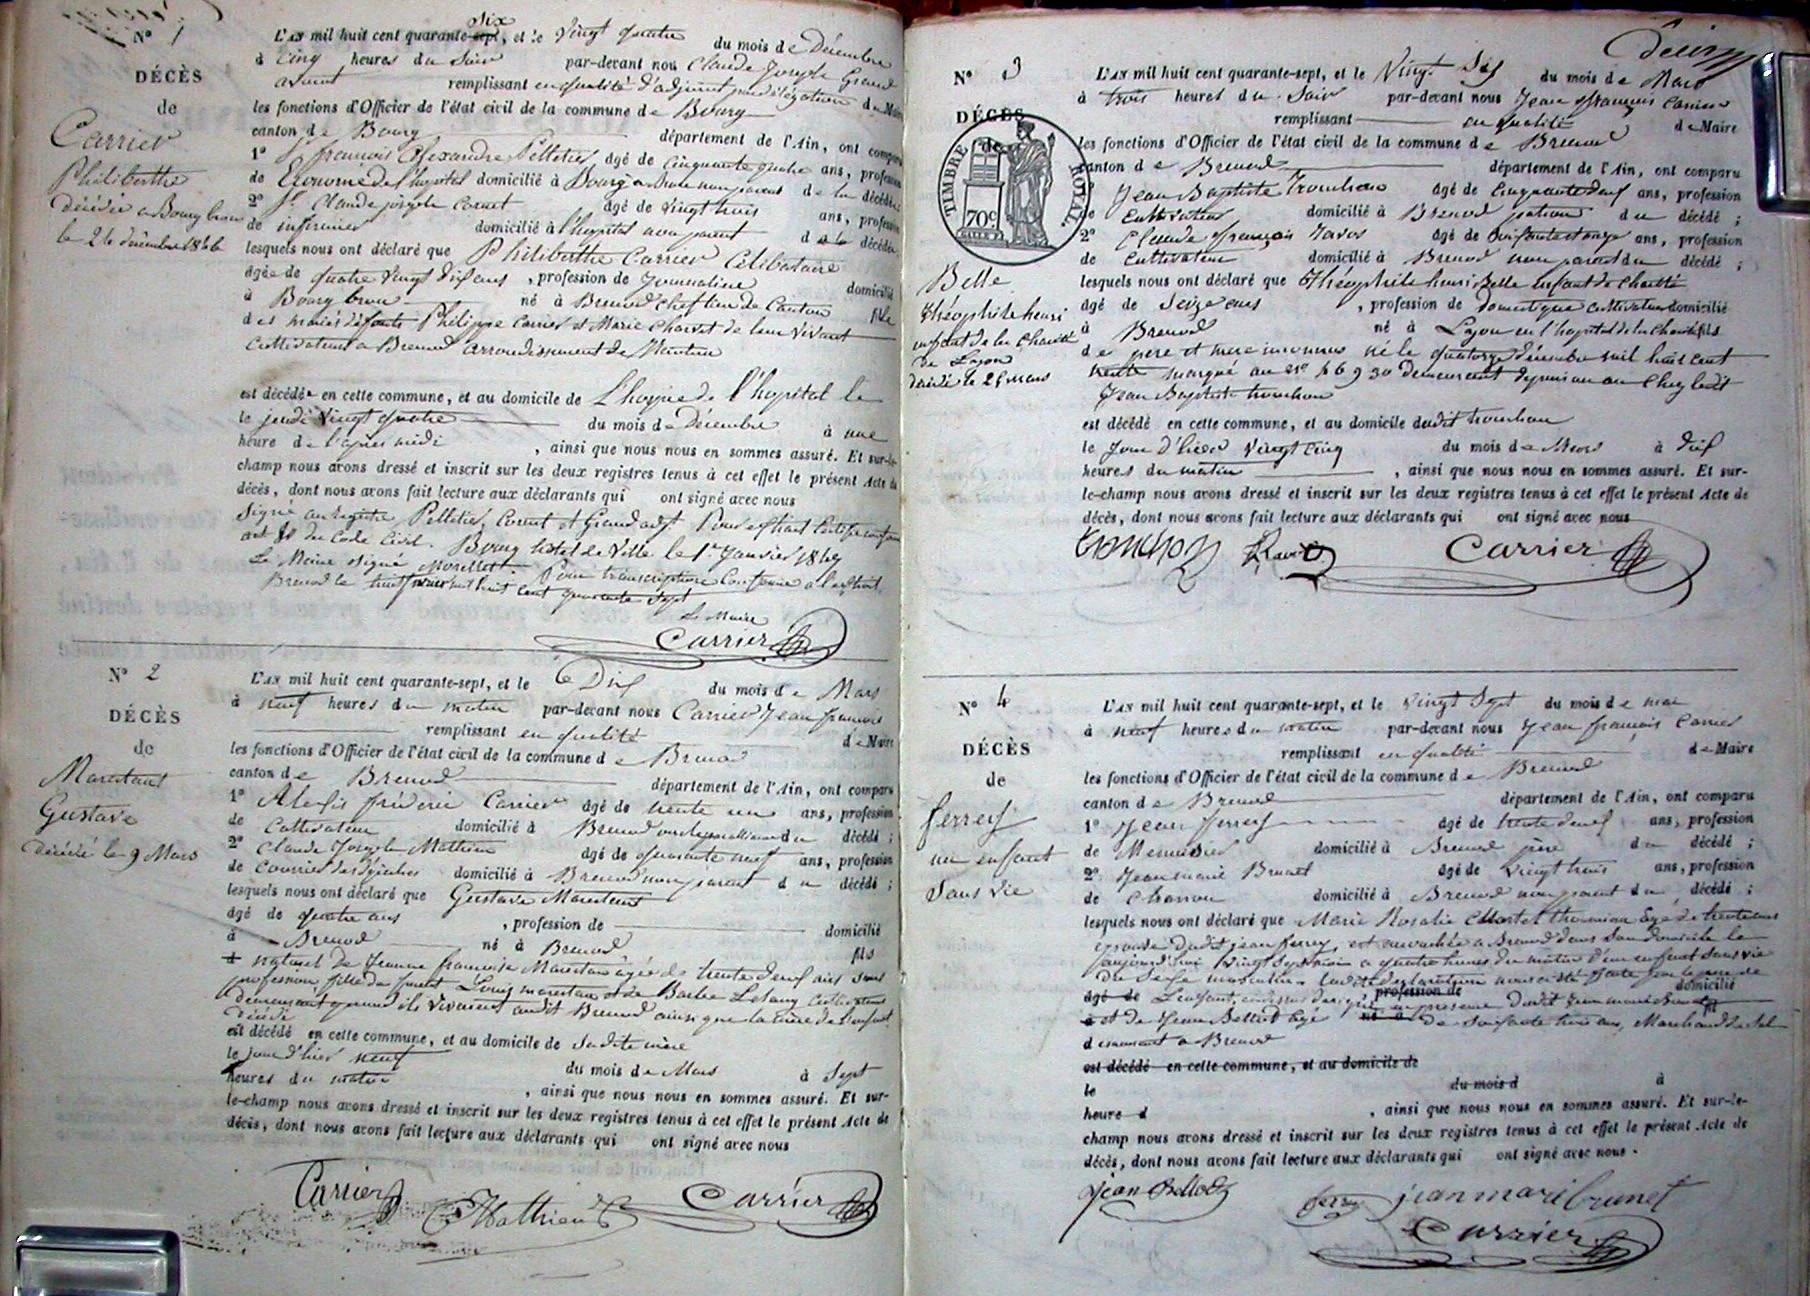 N° 1
DÉCÈS
de
Carrier
Philiberthe
décédée a Bourg
le 24 décembre 1846
L'AN mil huit cent quarante-sept six, et le Vingt quatre du mois de Décembre
à Cinq heures du Soir par-devant nous Claude Joseph Grand
remplissant en qualité d'adjoint par délégation du Maire
les fonctions d'Officier de l'état civil de la commune de Bourg
canton de Bourg département de l'Ain, ont comparu
1° françois Alexandre Pelletier âgé de Cinquante quatre ans, profession
de Econome de l'hopital domicilié à Bourg non parent de la décédée
2° Sr Claude joseph Cornet âgé de vingt trois ans, profession
de infirmier domicilié à l'hopital non parent de la décédée
lesquels nous ont déclaré que Philiberthe Carrier Célibataire
âgée de quatre Vingt dix ans, profession de Journalière domicilié
à Bourg né à Brenod chef lieu de Canton fille
des mariés défunts Philippe Carrier et Marie Charvet de leur vivant
cultivateurs a Brenod arrondissement de Nantua
est décédée en cette commune, et au domicile de L'hospice de l'hopital le
le jeudi Vingt quatre du mois de Décembre à une
heure de l'après midi, ainsi que nous nous en sommes assuré. Et sur-le-
champ nous avons dressé et inscrit sur les deux registres tenus à cet effet le présent Acte de
décès, dont nous avons fait lecture aux déclarants qui ont signé avec nous
Signé au registre Pelletier, Cornet et Grand adjt Pour extrait
art 80 du Code Civil. Bourg hotel de Ville le 1er Janvier 1847
Le Maire signé Morellet. Pour transcription Conforme a l'extrait
Brenod le mil huit cent quarante Sept
Le Maire
Carrier
N° 2
DÉCÈS
de
Marestant
Gustave
décédé le 9 Mars
L'AN mil huit cent quarante-sept, et le Dix du mois de Mars
à neuf heures du matin par-devant nous Carrier Jean françois
remplissant en qualité de Maire
les fonctions d'Officier de l'état civil de la commune de Brenod
canton de Brenod département de l'Ain, ont comparu
1° Alexis fréderic Carrier âgé de trente un ans, profession
de Cultivateur domicilié à Brenod du décédé ;
2° Claude Joseph Mathieu âgé de quarante neuf ans, profession
de Courrier des dépêches domicilié à Brenod non parent du décédé ;
lesquels nous ont déclaré que Gustave Marestant
âgé de quatre ans, profession de domicilié
à Brenod né à Brenod fils
naturel de Jeanne françoise Marestant agée de trente deux ans sans
profession fille de défunt Louis marestan et de Barbe Cultivateurs
demeurant quand ils vivaient audit Brenod ainsi que la mère de l'enfant
décédé
est décédé en cette commune, et au domicile de Sadite mère
le jour d'hier neuf du mois de Mars à Sept
heures du matin, ainsi que nous nous en sommes assuré. Et sur-
le-champ nous avons dressé et inscrit sur les deux registres tenus à cet effet le présent Acte de
décès, dont nous avons fait lecture aux déclarants qui ont signé avec nous
Carrier Mathieu Carrier
N° 3
DÉCÈS
de
TIMBRE ROYAL
70c
Belle
théophile henri
enfant de la Charité
de Lyon
décédé le 25 mars
L'AN mil huit cent quarante-sept, et le Vingt Six du mois de Mars
à trois heures du Soir par-devant nous Jean françois Carrier
remplissant en qualité de Maire
les fonctions d'Officier de l'état civil de la commune de Brenod
canton de Brenod département de l'Ain, ont comparu
Jean Baptiste Tronchon âgé de Cinquante deux ans, profession
de Cultivateur domicilié à Brenod patron du décédé ;
2° Claude françois Ravos âgé de ans, profession
de Cultivateur domicilié à Brenod non parent du décédé ;
lesquels nous ont déclaré que théophile henri Belle enfant de Charité
âgé de Seize ans, profession de domestique cultivateur domicilié
à Brenod né à Lyon en l'hopital de la charité fils
de père et mère inconnus né le quatorze décembre mil huit cent
trente marqué au n° 46930 demeurant depuis un an Chez ledit
Jean Baptiste tronchon
est décédé en cette commune, et au domicile dudit tronchon
le Jour d'hier Vingt Cinq du mois de Mars à dix
heures du matin, ainsi que nous nous en sommes assuré. Et sur-
le-champ nous avons dressé et inscrit sur les deux registres tenus à cet effet le présent Acte de
décès, dont nous avons fait lecture aux déclarants qui ont signé avec nous
tronchon Ravos Carrier
N° 4
DÉCÈS
de
ferrey
un enfant
Sans vie
L'AN mil huit cent quarante-sept, et le Vingt Sept du mois de mai
à neuf heures du matin par-devant nous Jean françois Carrier
remplissant en qualité de Maire
les fonctions d'Officier de l'état civil de la commune de Brenod
canton de Brenod département de l'Ain, ont comparu
1° Jean ferrey âgé de trente deux ans, profession
de Menuisier domicilié à Brenod père du décédé ;
2° Jean marie Brunet âgé de vingt trois ans, profession
de Charron domicilié à Brenod non parent du décédé ;
lesquels nous ont déclaré que Marie Rosalie Martel agé de trente ans
épouse dudit jean ferrey, est accouchée a Brenod dans Son domicile le
jourd'hui Vingt Sept mai a quatre heures du matin d'un enfant Sans vie
du Sexe masculin. ladite déclaration nous a été faite par le père de
âgé de L'enfant profession de présence dudit Jean marie Brunet domicilié
à et de Jean Bellod agé né à de Soixante trois ans, Marchand de Sel fil
demeurant a Brenod
est décédé en cette commune, et au domicile de
le du mois d à
heure d, ainsi que nous nous en sommes assuré. Et sur-le-
champ nous avons dressé et inscrit sur les deux registres tenus à cet effet le présent Acte de
décès, dont nous avons fait lecture aux déclarants qui ont signé avec nous.
Jean Bellod ferrey jean marie brunet
Carrier